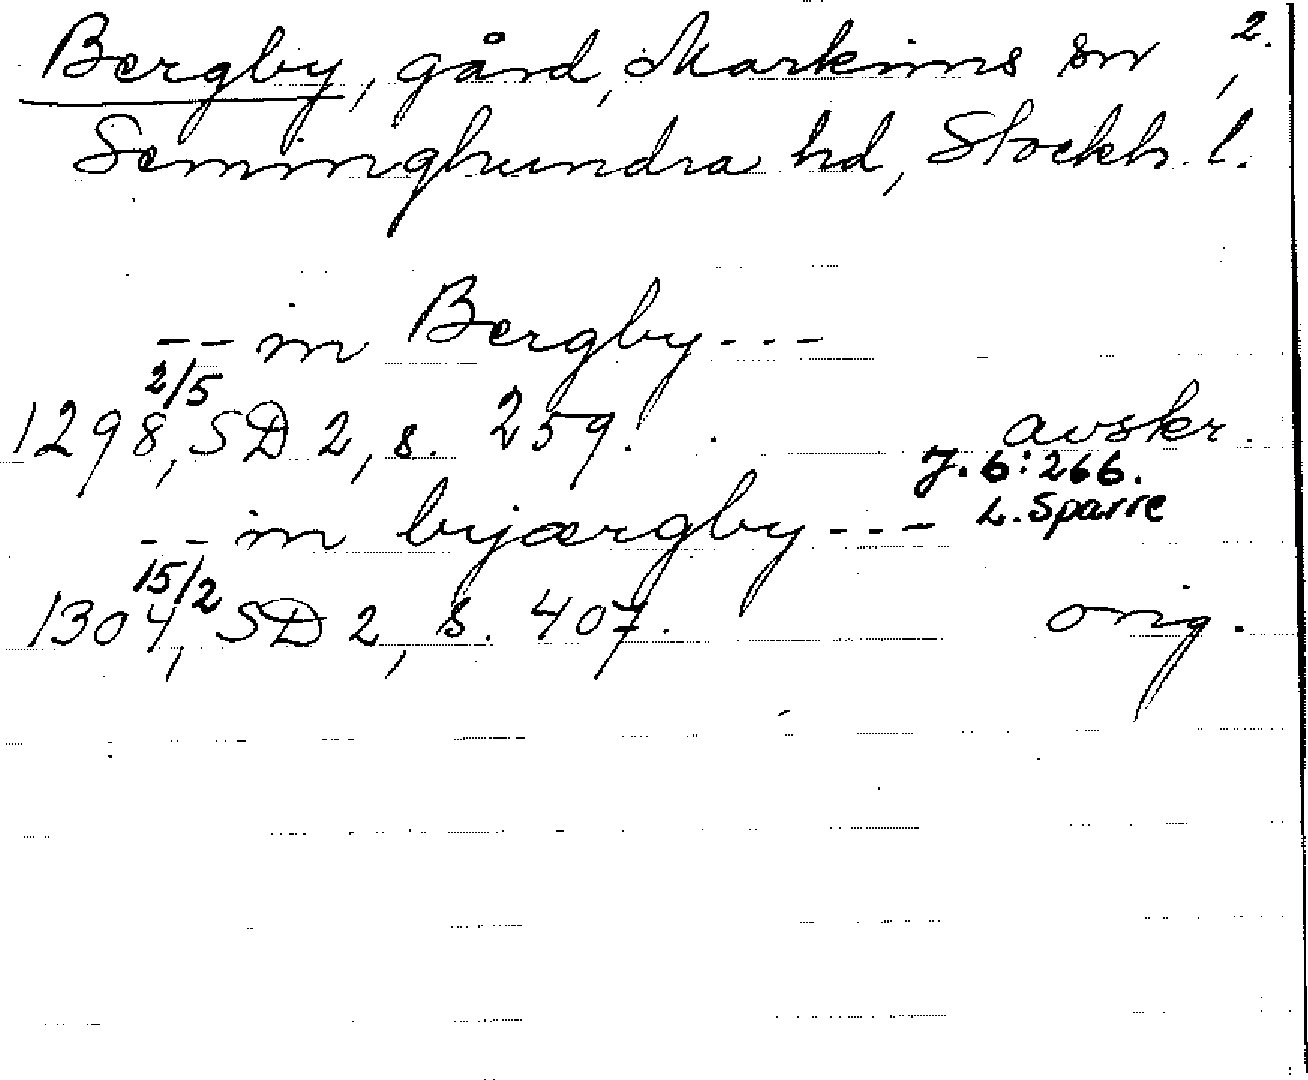 Bergby, gård, Markims sn, 2.
Seminghundra hd, Stockh. l.
-- in Bergby ---
1298 2/5, SD 2, s. 259. avskr.
J. 6:266.
L. Sparre
-- in byærgby ---
1304 15/2, SD 2, s. 407. orig.